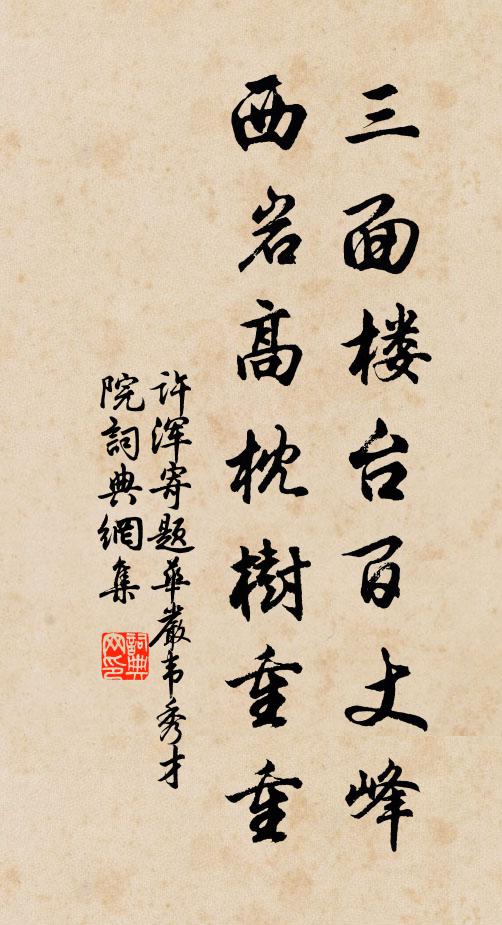 三面楼台百丈峰
西岩高枕樹重重
许浑寄题華嚴韦秀才
院詞典網集
詞典
网印